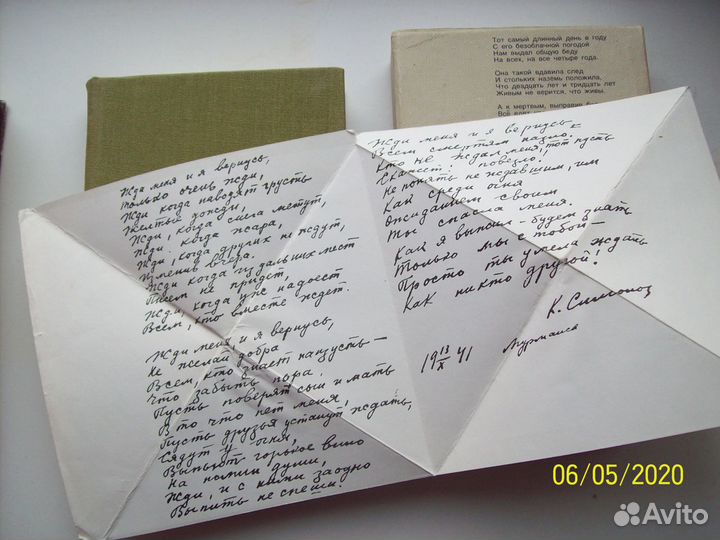 Тот самый длинный день в году
С его безоблачной погодой
Нам выдал общую беду
На всех, на все четыре года.
Она такой вдавила след
И стольких наземь положила,
Что двадцать лет и тридцать лет
Живым не верится, что живы.
А к мертвым, выправив
Жди меня и я вернусь,
Только очень жди,
Жди когда наводят грусть
Желтые дожди,
Жди, когда снега метут,
Жди, когда жара,
Жди, когда других не ждут,
Изменив вчера.
Жди когда из дальних мест
Писем не придет,
Жди, когда уж надоест
Всем, кто вместе ждет.
Жди меня и я вернусь,
Не желай добра
Всем, кто знает наизусть —
Что забыть пора.
Пусть поверят сын и мать
В то что нет меня,
Пусть друзья устанут ждать,
Сядут у огня,
Выпьют горькое вино
На помин души,
Жди, и с ними заодно
Выпить не спеши!
Жди меня и я вернусь —
Всем смертям назло.
Кто не ждал меня, тот пусть
Скажет: повезло.
Не понять не ждавшим, им
Как среди огня
Ожиданием своим
Ты спасла меня.
Как я выжил — будем знать
Только мы с тобой —
Просто ты умела ждать
Как никто другой!
К. Симонов
19 13/X 41
Мурманск
06/05/2020
Avito